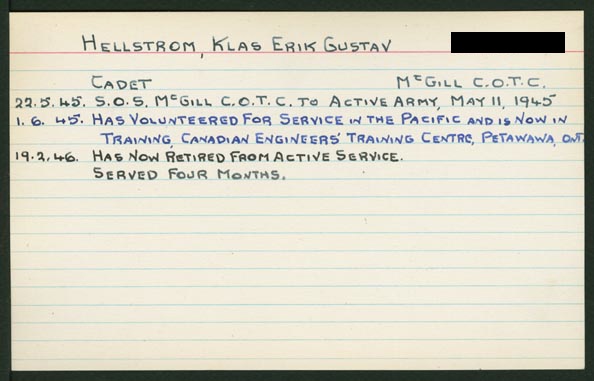 HELLSTROM, KLAS ERIK GUSTAV
CADET McGILL C.O.T.C.
22.5.45. S.O.S. McGILL C.O.T.C. TO ACTIVE ARMY, MAY 11, 1945
1.6.45. HAS VOLUNTEERED FOR SERVICE IN THE PACIFIC AND IS NOW IN
TRAINING, CANADIAN ENGINEERS' TRAINING CENTRE, PETAWAWA, ONT.
19.2.46. HAS NOW RETIRED FROM ACTIVE SERVICE.
SERVED FOUR MONTHS.